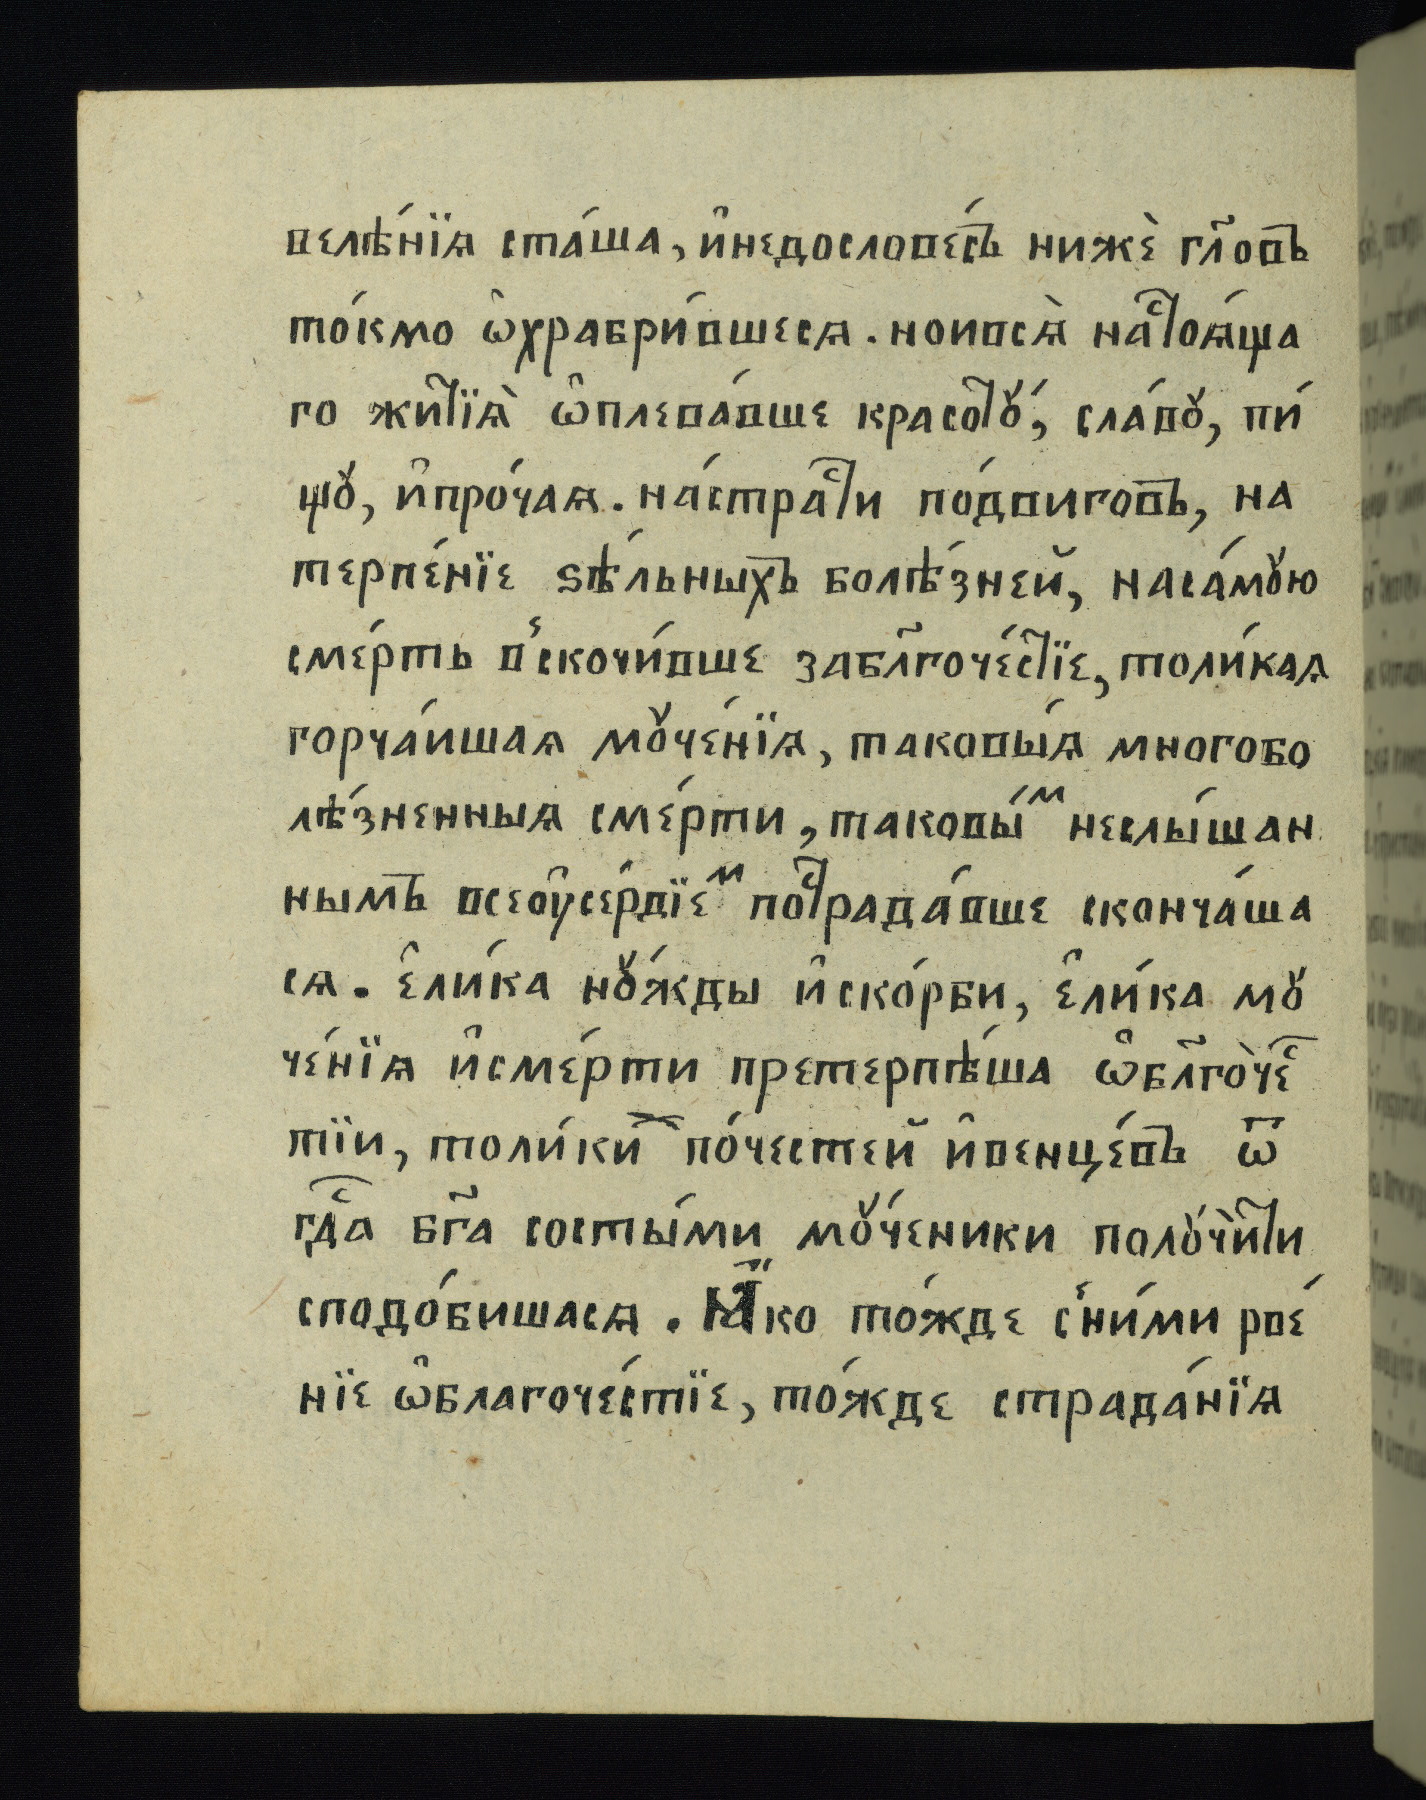 велѣ́нїѧ ста́ша, и҆недословéсъ нижѐ гл҃овъ
то́кмо ѡ҆храбри́вшесѧ. ноивсѧ̀ наⷭ҇тоѧ́ща
го житїѧ̀ ѡ҆плева́вше красотꙋ́, сла́вꙋ, пи́
щꙋ, и҆про́чаѧ. на́страⷭ҇ти по́двиговъ, на
терпе́нїе ѕѣ́льныхъ болѣ́зней, наса́мꙋю
сме́рть в̾скочи́вше забл҃гоче́стїе, толи́каѧ
горча́ишаѧ мꙋче́нїѧ, таковы́ѧ многобо
лѣ́зненныѧ сме́рти, таковы́ⷨ неслы́шан
нымъ всеоу҆се́рдїеⷨ поⷭ҇традáвше сконча́ша
сѧ. є҆ли́ка нꙋ́жды и҆ско́рби, є҆ли́ка мꙋ
че́нїѧ и҆сме́рти претерпѣ́ша ѡ҆бл҃гоче́ⷭ҇
тїи, толи́киⷯ по́честей и҆венце́въ ѿ
гдⷭ҇а бг҃а состы́ми мꙋ́ченики полꙋчи́ти
сподо́бишасѧ. Ꙗ҆́ко то́жде с̾ни́ми рве́
нїе ѡ҆благоче́стїе, то́жде страда́нїѧ